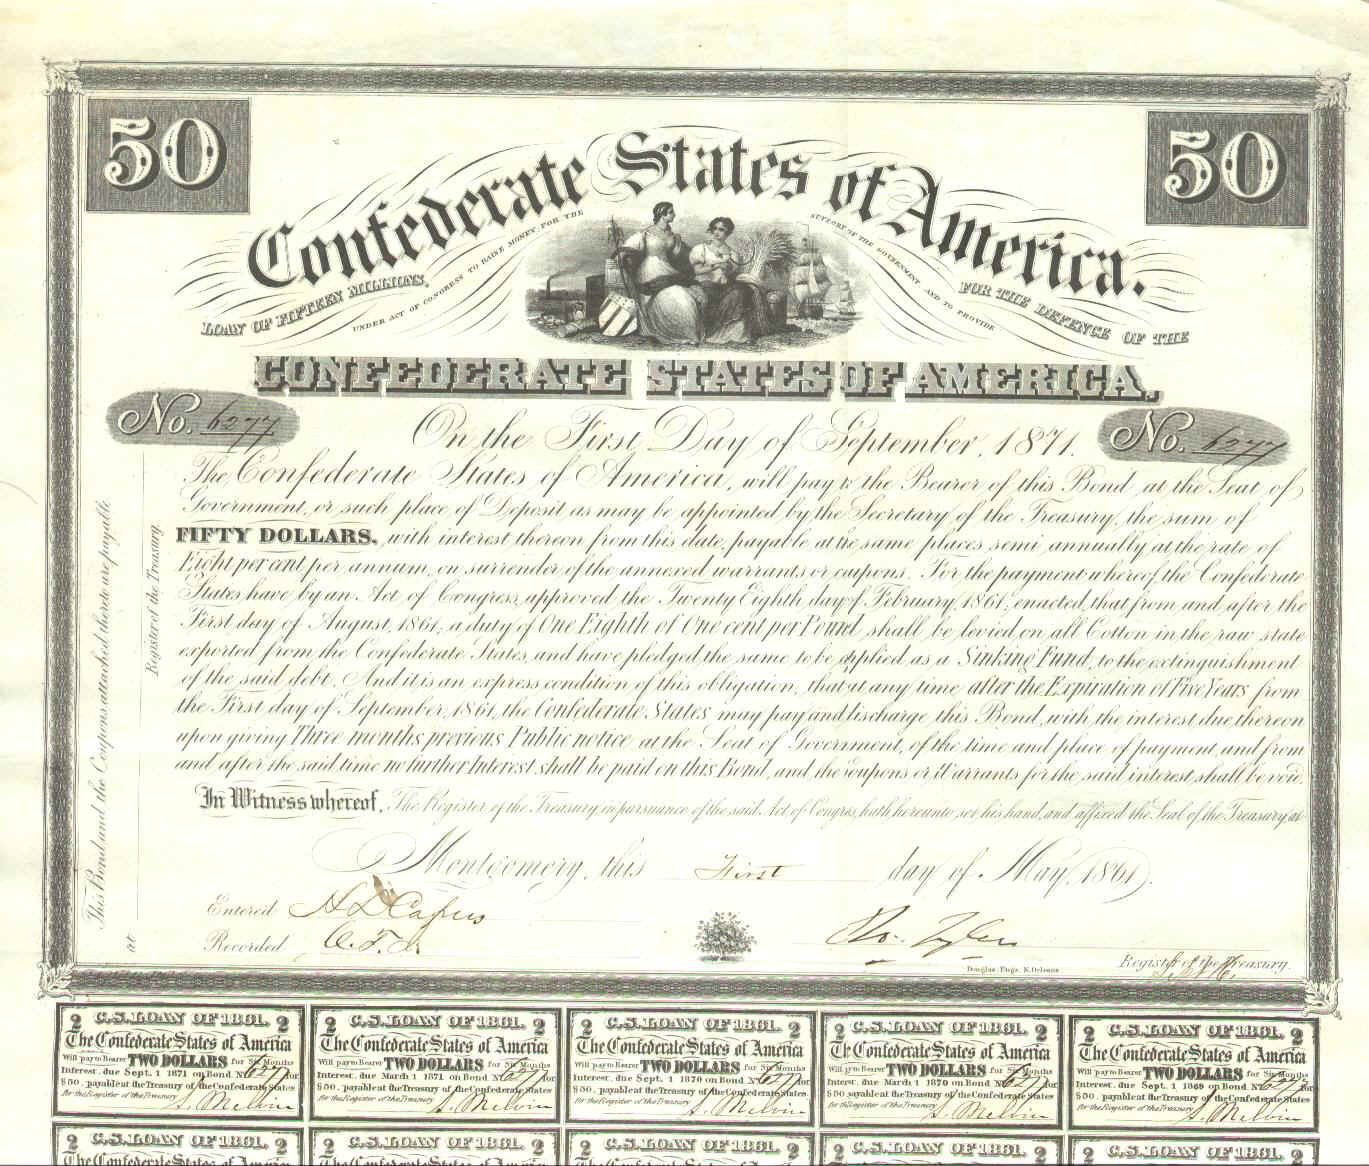 50
50
Confederate States of America.
LOAN OF FIFTEEN MILLIONS,
UNDER ACT OF CONGRESS TO RAISE MONEY FOR THE
SUPPORT OF THE GOVERNMENT AND TO PROVIDE
FOR THE DEFENCE OF THE
CONFEDERATE STATES OF AMERICA.
No. 6277
No. 6277
On the First Day of September, 1871.
The Confederate States of America, will pay to the Bearer of this Bond, at the Seat of
Government, or such place of Deposit as may be appointed by the Secretary of the Treasury, the sum of
FIFTY DOLLARS, with interest thereon from this date, payable at the same places semi annually at the rate of
Eight per cent per annum, on surrender of the annexed warrants or coupons. For the payment whereof, the Confederate
States have by an Act of Congress, approved the Twenty Eighth day of February, 1861, enacted, that from and after the
First day of August, 1861, a duty of One Eighth of One cent per Pound shall be levied on all Cotton in the raw state
exported from the Confederate States, and have pledged the same to be applied as a Sinking Fund, to the extinguishment
of the said debt. And it is an express condition of this obligation, that at any time after the Expiration of Five Years, from
the First day of September, 1861, the Confederate States may pay and discharge this Bond, with the interest due thereon
upon giving Three months previous Public notice at the Seat of Government, of the time and place of payment, and from
and after the said time no further Interest shall be paid on this Bond, and the coupons or Warrants for the said interest shall be void.
In Witness whereof, The Register of the Treasury, in pursuance of the said Act of Congress, hath hereunto set his hand, and affixed the Seal of the Treasury at
Montgomery, this First day of May, 1861.
Entered H D Capers
Recorded C. T. J.
Ro. Tyler
Douglas Engr. N. Orleans
Register of the Treasury.
This Bond and the Coupons attached thereto are payable
at
Register of the Treasury.
2 C.S. LOAN OF 1861. 2
The Confederate States of America
Will pay to Bearer TWO DOLLARS for Six Months
Interest, due Sept. 1 1871 on Bond No 6277 for
$50, payable at the Treasury of the Confederate States
for the Register of the Treasury S. Melvin
2 C.S. LOAN OF 1861. 2
The Confederate States of America
Will pay to Bearer TWO DOLLARS for Six Months
Interest, due March 1 1871 on Bond No 6277 for
$50, payable at the Treasury of the Confederate States
for the Register of the Treasury S. Melvin
2 C.S. LOAN OF 1861. 2
The Confederate States of America
Will pay to Bearer TWO DOLLARS for Six Months
Interest, due Sept. 1 1870 on Bond No 6277 for
$50, payable at the Treasury of the Confederate States
for the Register of the Treasury S. Melvin
2 C.S. LOAN OF 1861. 2
The Confederate States of America
Will pay to Bearer TWO DOLLARS for Six Months
Interest, due March 1 1870 on Bond No 6277 for
$50, payable at the Treasury of the Confederate States
for the Register of the Treasury S. Melvin
2 C.S. LOAN OF 1861. 2
The Confederate States of America
Will pay to Bearer TWO DOLLARS for Six Months
Interest, due Sept. 1 1869 on Bond No 6277 for
$50, payable at the Treasury of the Confederate States
for the Register of the Treasury S. Melvin
2 C.S. LOAN OF 1861. 2
The Confederate States of America
2 C.S. LOAN OF 1861. 2
The Confederate States of America
2 C.S. LOAN OF 1861. 2
The Confederate States of America
2 C.S. LOAN OF 1861. 2
The Confederate States of America
2 C.S. LOAN OF 1861. 2
The Confederate States of America